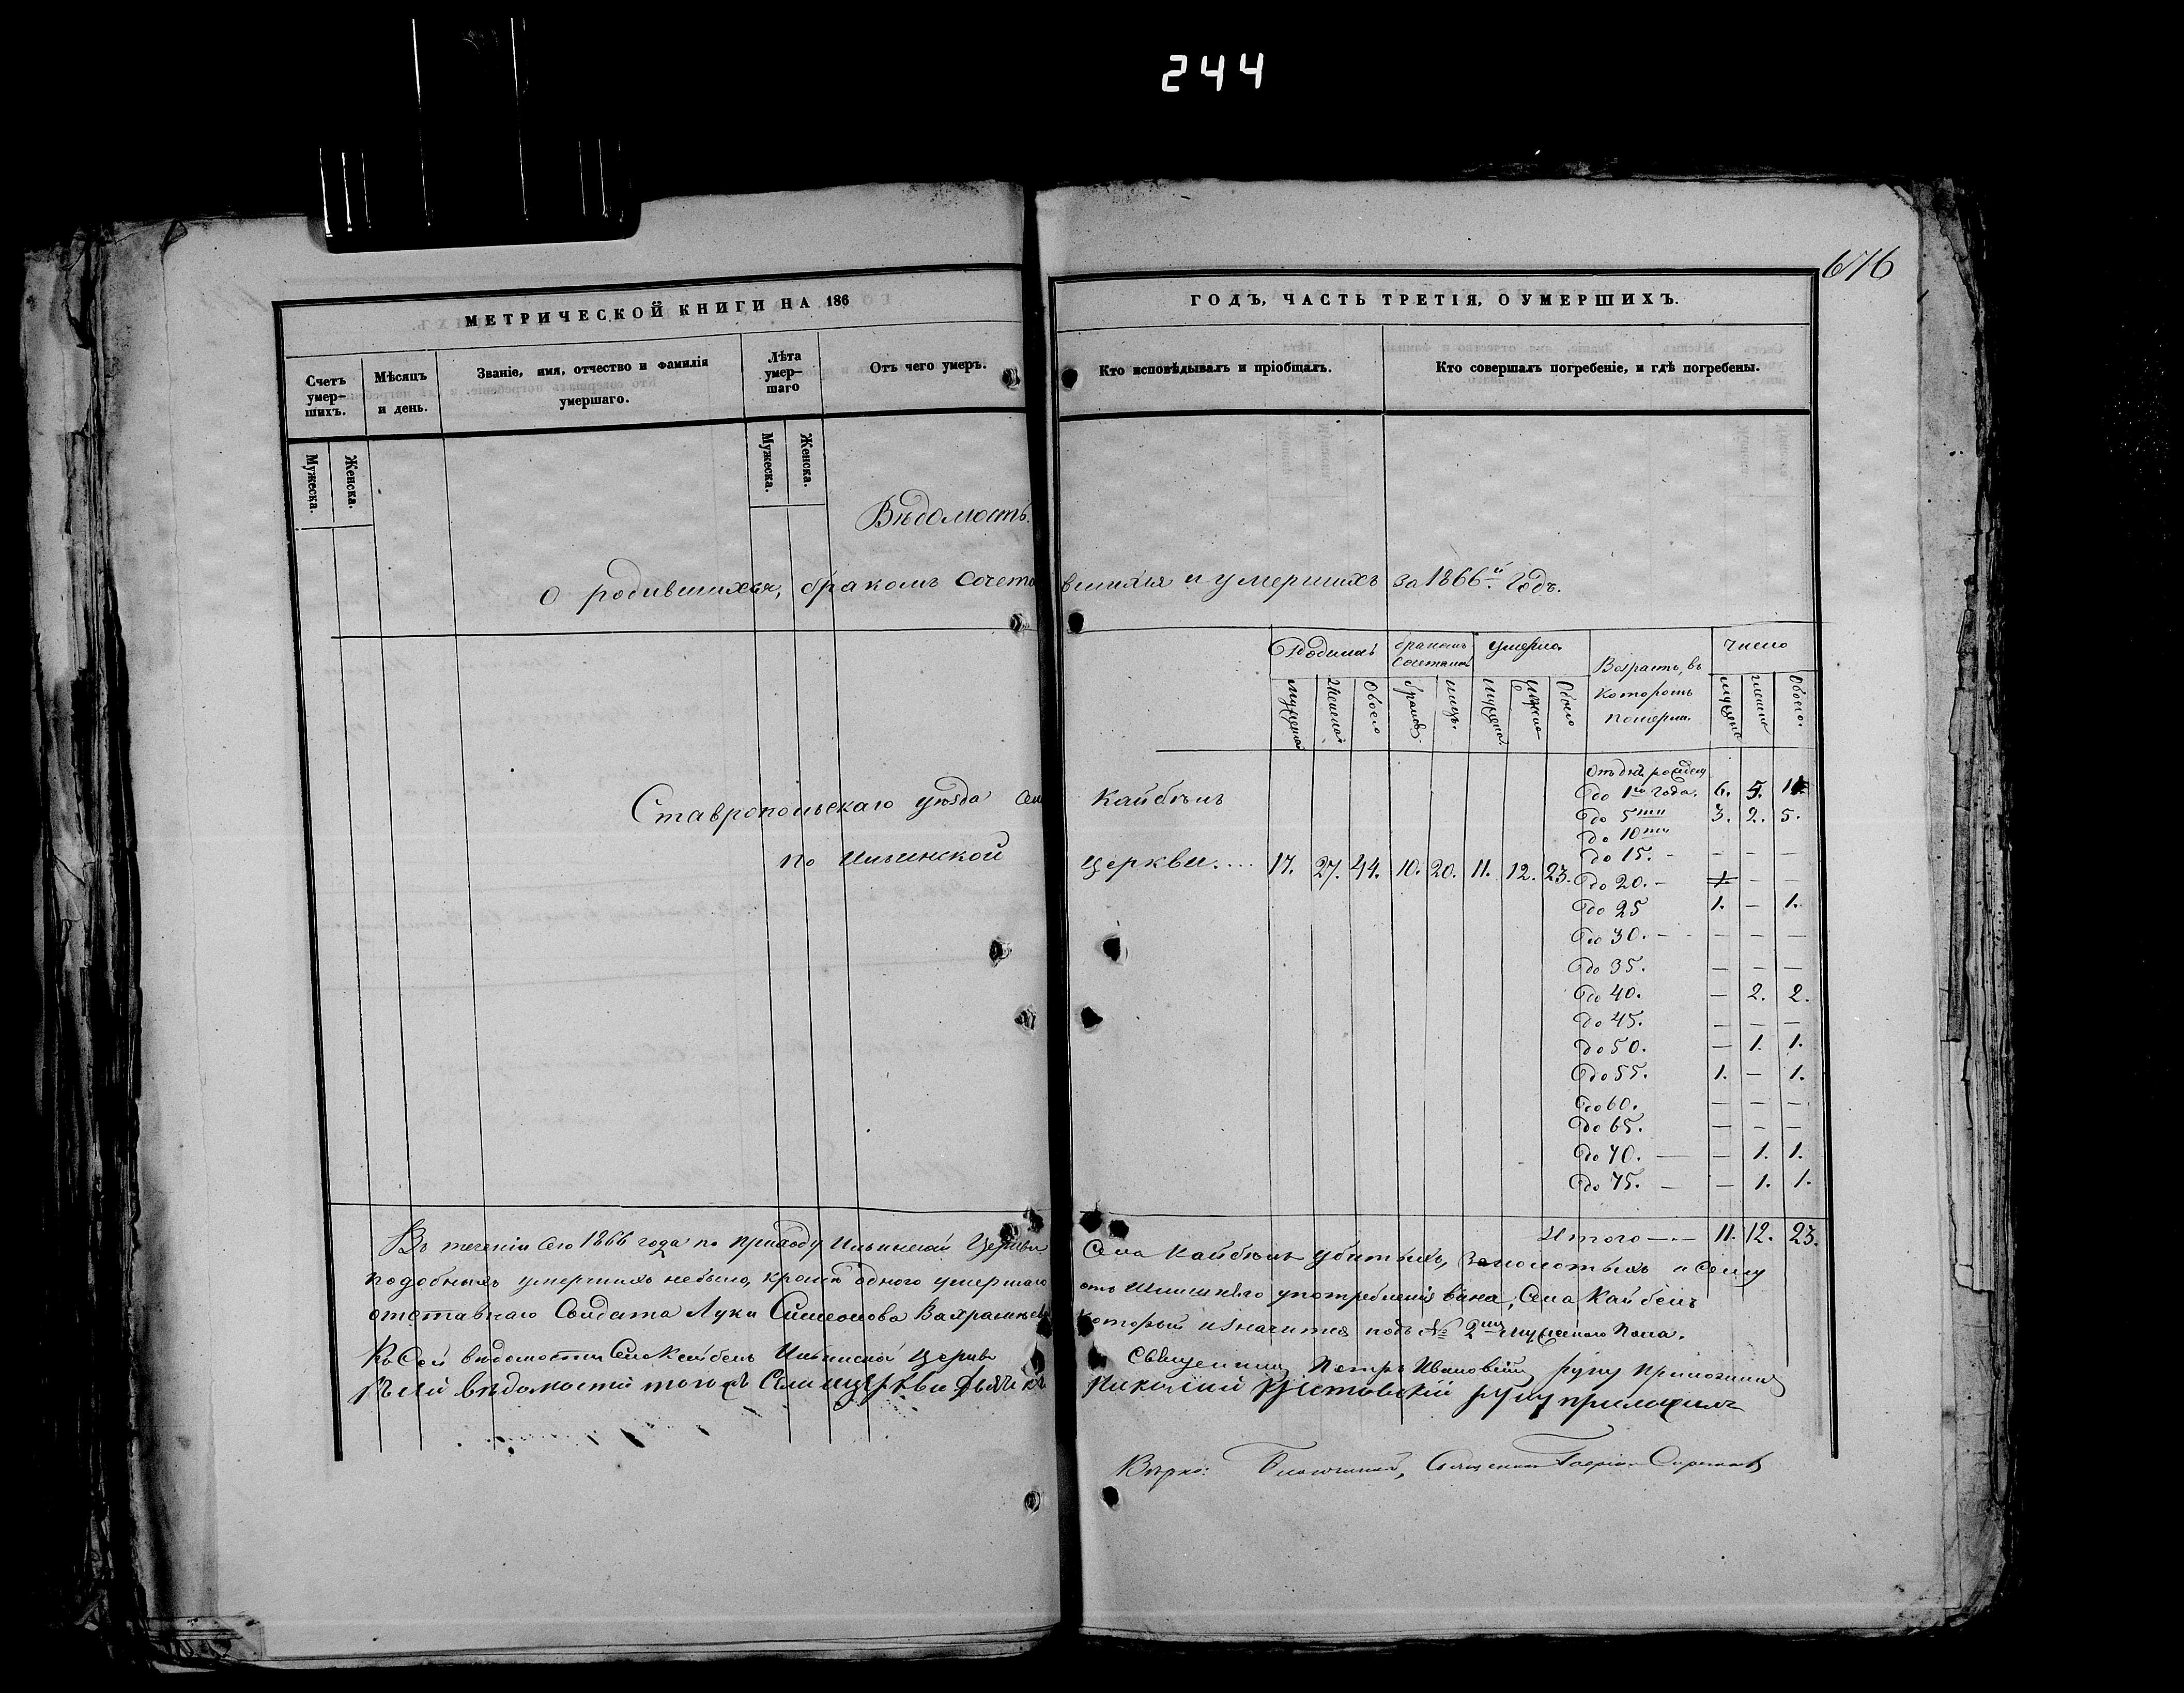 244
676
МЕТРИЧЕСКОЙ КНИГИ НА 186 ГОДЪ, ЧАСТЬ ТРЕТІЯ, О УМЕРШИХЪ.
Счетъ умер-шихъ.
Мѣсяцъ и день.
Званіе, имя, отчество и фамилія умершаго.
Лѣта умер-шаго
Отъ чего умеръ.
Кто исповѣдывалъ и пріобщалъ.
Кто совершалъ погребеніе, и гдѣ погребены.
Мужеска. Женска.
Мужеска. Женска.
Вѣдомость.
О родившихся, бракомъ сочетавшихся и умершихъ за 1866й Годъ.
Родилось бракомъ сочеталось умерло Возрастъ, въ которомъ померли. Число
мужеска женска Обоего браковъ лицъ. мужеска женска Обоего мужеска женска Обоего.
Отъ дня рожден.
до 1го года. 6. 5. 11
до 5ти 3. 2. 5.
до 10ти
до 15. - — — —
до 20. - 1. — —
до 25 1. — 1.
до 30. - — — —
до 35. — — —
до 40. — 2. 2.
до 45. — — —
до 50. — 1. 1.
до 55. 1. — 1.
до 60. — — —
до 65. — — —
до 70. — — 1. 1.
до 75. — — 1. 1.
Ставропольскаго уѣзда села Кайбѣлъ
по Ильинской церкви.... 17. 27. 44. 10. 20. 11. 12. 23.
Итого — 11. 12. 23.
Въ теченіи сего 1866 года по приходу Ильинской Церкви Села Кайбѣлъ убитыхъ, и сему
подобныхъ умершихъ небыло, кромѣ одного умершаго отъ излишняго употребленія вина, Села Кайбелъ
отставнаго Солдата Луки Симеонова который и значится подъ № 2мъ мужескаго пола.
Къ сей вѣдомости Села Кайбелъ Ильинской церкви Священникъ Петръ Ивановскій руку приложилъ
Къ сей вѣдомости тогожъ Села церкви Дьячекъ Николай руку приложилъ
Вѣрно: Благочинный, Священникъ